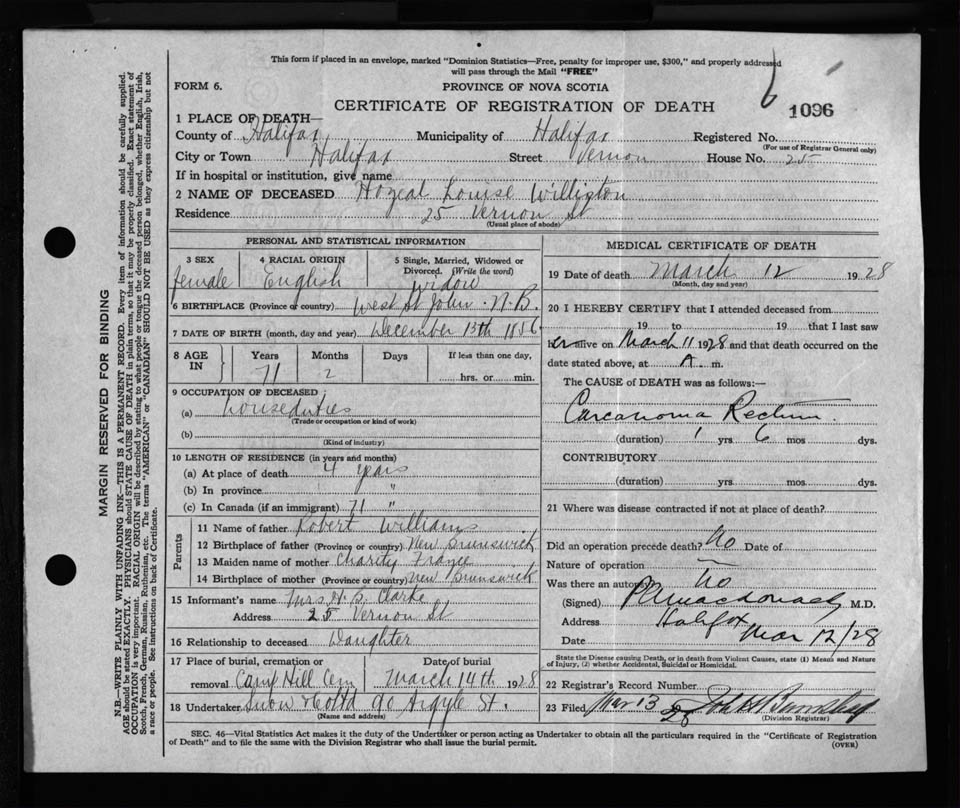 This form if placed in an envelope, marked "Dominion Statistics—Free, penalty for improper use, $300," and properly addressed
will pass through the Mail "FREE"
FORM 6.
PROVINCE OF NOVA SCOTIA
CERTIFICATE OF REGISTRATION OF DEATH
1096
1 PLACE OF DEATH—
County of Halifax Municipality of Halifax Registered No.
(For use of Registrar General only)
City or Town Halifax Street Vernon House No. 25
If in hospital or institution, give name
2 NAME OF DECEASED Hozeal Louise Williston
Residence 25 Vernon St
(Usual place of abode)
PERSONAL AND STATISTICAL INFORMATION
3 SEX female
4 RACIAL ORIGIN English
5 Single, Married, Widowed or Divorced. (Write the word) Widow
6 BIRTHPLACE (Province or country) West St John. N.B.
7 DATE OF BIRTH (month, day and year) December 13th 1856
8 AGE IN Years 71 Months 2 Days If less than one day, hrs. or min.
9 OCCUPATION OF DECEASED
(a) houseduties
(Trade or occupation or kind of work)
(b)
(Kind of industry)
10 LENGTH OF RESIDENCE (in years and months)
(a) At place of death 4 years
(b) In province " "
(c) In Canada (if an immigrant) 71 "
Parents
11 Name of father Robert Williams
12 Birthplace of father (Province or country) New Brunswick
13 Maiden name of mother Charity France
14 Birthplace of mother (Province or country) New Brunswick
15 Informant's name Mrs H. B. Clarke
Address 25 Vernon St
16 Relationship to deceased Daughter
17 Place of burial, cremation or removal Camp Hill Cem
Date of burial March 14th 1928
18 Undertaker Snow & Co Ltd 90 Argyle St.
(Name and address)
MEDICAL CERTIFICATE OF DEATH
19 Date of death March 12 1928
(Month, day and year)
20 I HEREBY CERTIFY that I attended deceased from
19 to 19 that I last saw
her alive on March 11 1928 and that death occurred on the
date stated above, at A m.
The CAUSE of DEATH was as follows:—
Carcanoma Rectum
(duration) 1 yrs 6 mos dys.
CONTRIBUTORY
(duration) yrs. mos. dys.
21 Where was disease contracted if not at place of death?
Did an operation precede death? No Date of
Nature of operation —
Was there an autopsy No
(Signed) Macdonald M.D.
Address Halifax
Date Mar 12/28
State the Disease causing Death, or in death from Violent Causes, state (1) Means and Nature
of Injury, (2) whether Accidental, Suicidal or Homicidal.
22 Registrar's Record Number
23 Filed Mar 13 28
(Division Registrar)
SEC. 46—Vital Statistics Act makes it the duty of the Undertaker or person acting as Undertaker to obtain all the particulars required in the "Certificate of Registration
of Death" and to file the same with the Division Registrar who shall issue the burial permit.
(OVER)
MARGIN RESERVED FOR BINDING
N.B.—WRITE PLAINLY WITH UNFADING INK—THIS IS A PERMANENT RECORD. Every item of information should be carefully supplied.
AGE should be stated EXACTLY. PHYSICIANS should STATE CAUSE OF DEATH in plain terms, so that it may be properly classified. Exact statement of
OCCUPATION is very important. RACIAL ORIGIN will be described by stating to what people or tongue the deceased person belonged, whether English, Irish,
Scotch, French, German, Russian, Ruthenian, etc. The terms "AMERICAN" or "CANADIAN" SHOULD NOT BE USED as they express citizenship but not
a race or people. See instructions on back of Certificate.